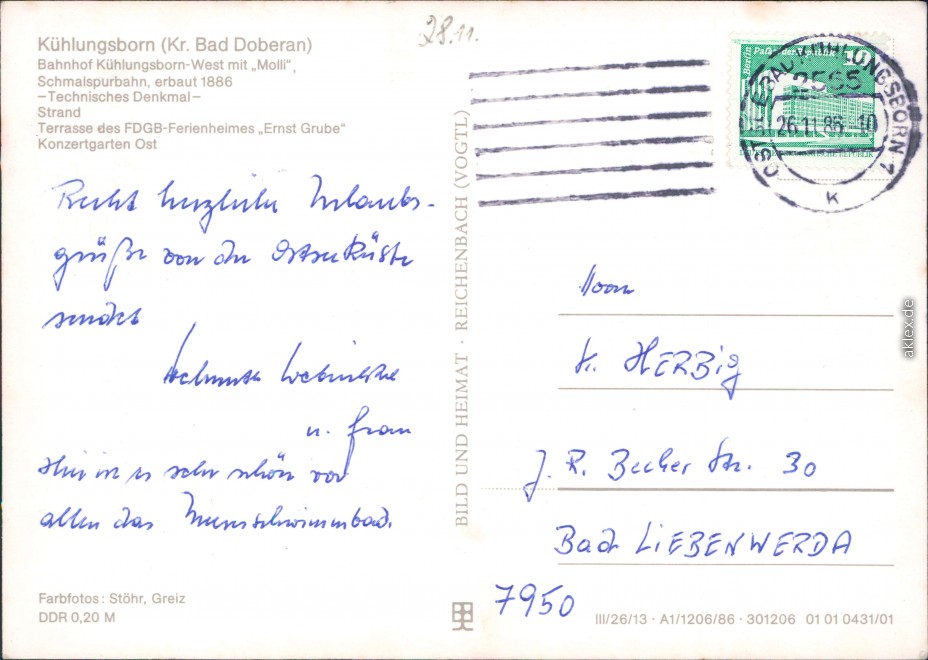 28.11.
Kühlungsborn (Kr. Bad Doberan)
Bahnhof Kühlungsborn-West mit „Molli“,
Schmalspurbahn, erbaut 1886
—Technisches Denkmal—
Strand
Terrasse des FDGB-Ferienheimes „Ernst Grube“
Konzertgarten Ost
Recht herzliche Urlaubs-
grüße von der Ostseeküste
sendet
Helmut
u. Frau
Hier ist es sehr schön vor
allem das Meerschwimmbad.
Farbfotos: Stöhr, Greiz
DDR 0,20 M
BILD UND HEIMAT · REICHENBACH (VOGTL)
Berlin Palast der Republik
10
OSTSEEBAD KÜHLUNGSBORN 1
2565
26.11.86-10
K
Herrn
K. HERBIG
J. R. Becher Str. 30
Bad LIEBENWERDA
7950
III/26/13 · A1/1206/86 · 301206 01 01 0431/01
aklex.de